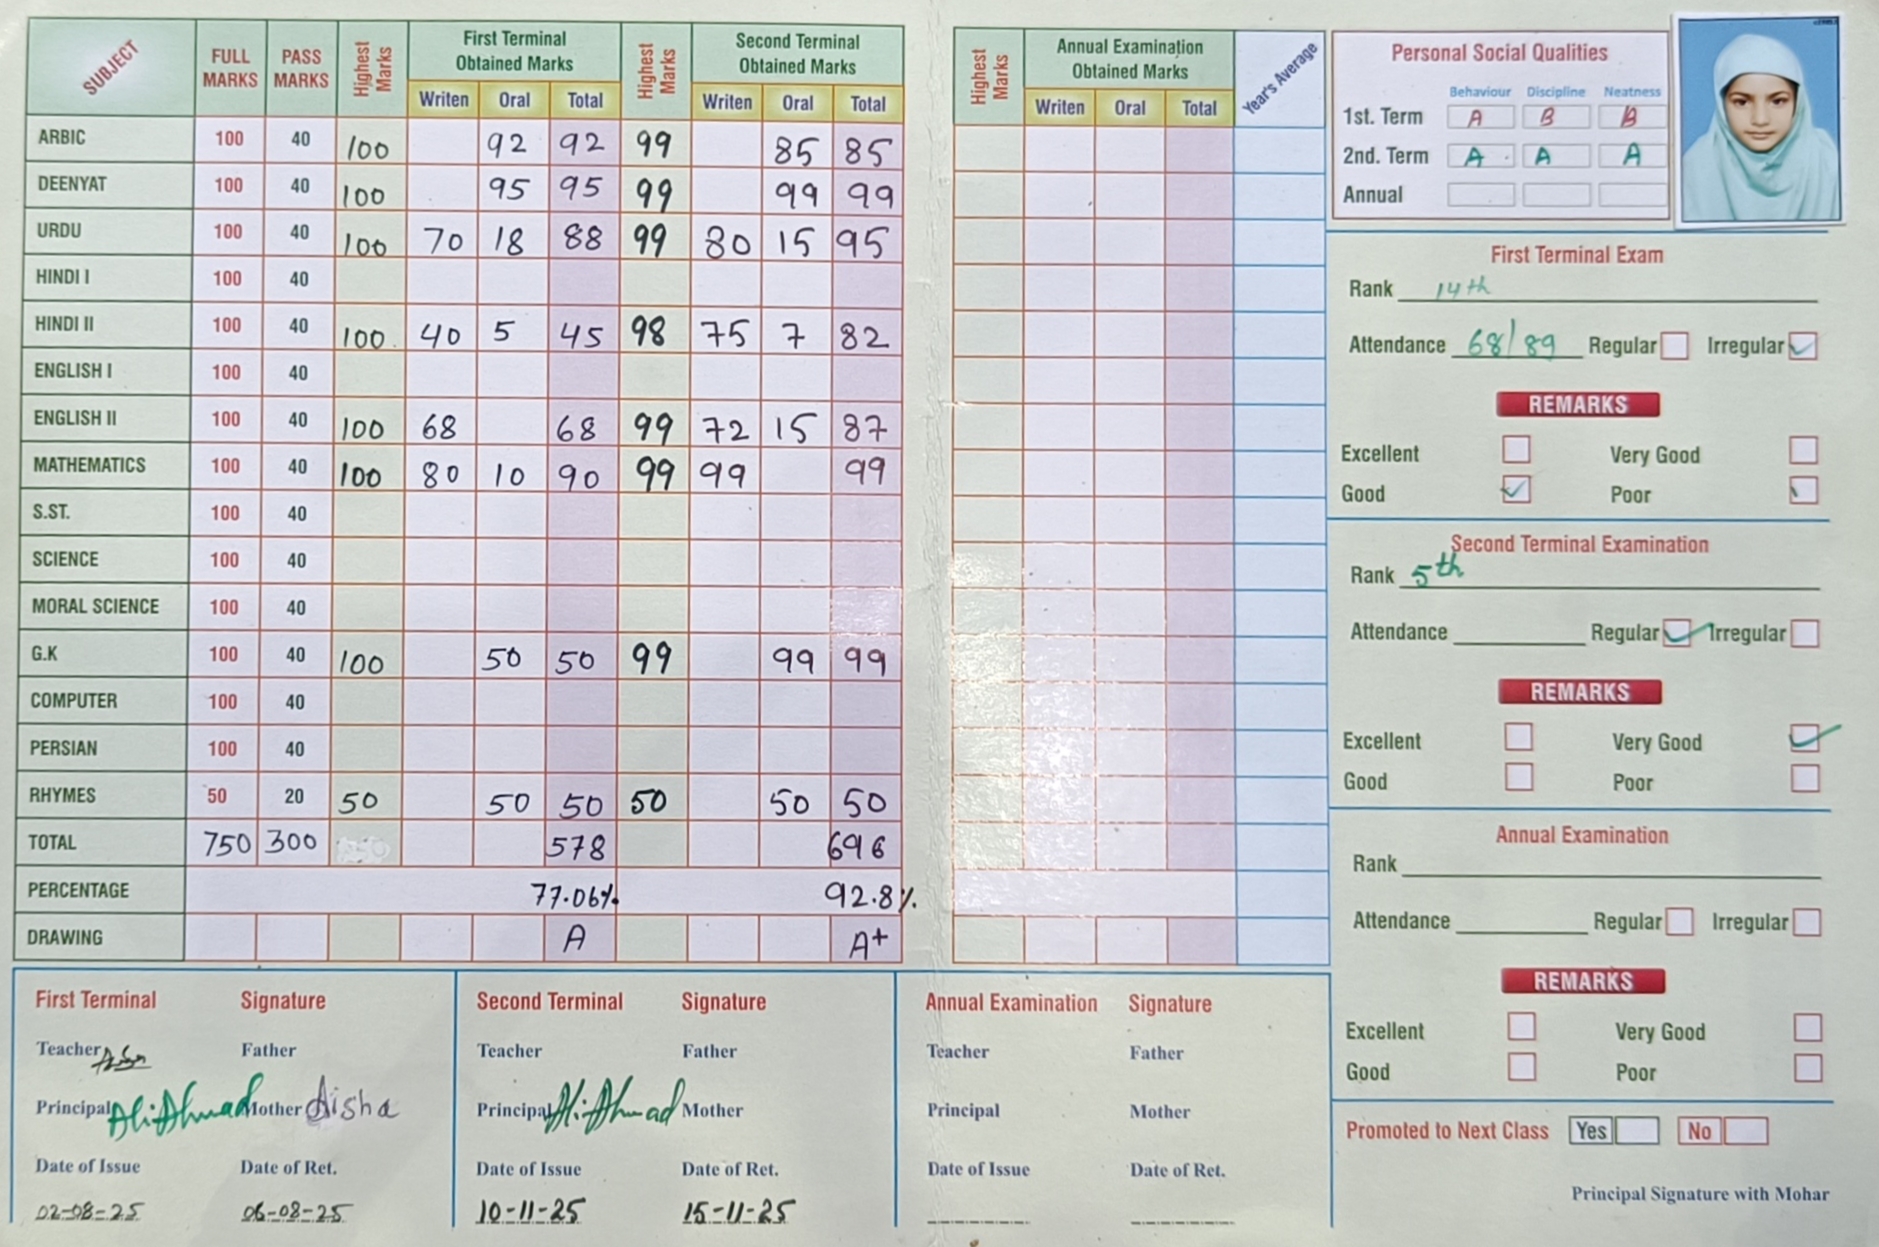 SUBJECT FULL MARKS PASS MARKS Highest Marks First Terminal Obtained Marks Highest Marks Second Terminal Obtained Marks
Writen Oral Total Writen Oral Total
ARBIC 100 40 100 92 92 99 85 85
DEENYAT 100 40 100 95 95 99 99 99
URDU 100 40 100 70 18 88 99 80 15 95
HINDI I 100 40
HINDI II 100 40 100 40 5 45 98 75 7 82
ENGLISH I 100 40
ENGLISH II 100 40 100 68 68 99 72 15 87
MATHEMATICS 100 40 100 80 10 90 99 99 99
S.ST. 100 40
SCIENCE 100 40
MORAL SCIENCE 100 40
G.K 100 40 100 50 50 99 99 99
COMPUTER 100 40
PERSIAN 100 40
RHYMES 50 20 50 50 50 50 50 50
TOTAL 750 300 578 696
PERCENTAGE 77.06% 92.8%
DRAWING A A+
Highest Marks Annual Examination Obtained Marks Year's Average
Writen Oral Total
Personal Social Qualities
Behaviour Discipline Neatness
1st. Term A B B
2nd. Term A A A
Annual
First Terminal Exam
Rank 14th
Attendance 68/89 Regular Irregular
REMARKS
Excellent Very Good
Good Poor
Second Terminal Examination
Rank 5th
Attendance Regular Irregular
REMARKS
Excellent Very Good
Good Poor
Annual Examination
Rank
Attendance Regular Irregular
REMARKS
Excellent Very Good
Good Poor
Promoted to Next Class Yes No
Principal Signature with Mohar
First Terminal Signature
Teacher Father
Principal Ali Ahmad Mother Aisha
Date of Issue Date of Ret.
02-08-25 06-08-25
Second Terminal Signature
Teacher Father
Principal Ali Ahmad Mother
Date of Issue Date of Ret.
10-11-25 15-11-25
Annual Examination Signature
Teacher Father
Principal Mother
Date of Issue Date of Ret.